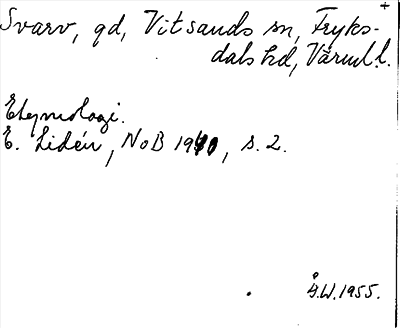 Svarv, gd, Vitsands sn, Fryks-
dals hd, Värml.l.
Etymologi.
E. Lidén, NoB 1910, s. 2.
Å.W. 1955.